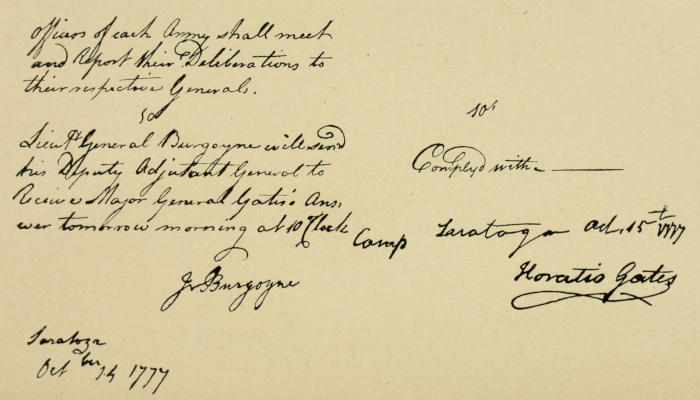 officers of each Army shall meet
and Report their Deliberations to
their respective Generals.
10th
Lieut General Burgoyne will send
his Deputy Adjutant General to
Receive Major General Gates's Ans-
wer tomorrow morning at 10 Clock
J Burgoyne
Saratoga
Octber 14 1777
10th
Complyd with
Camp Saratoga Oct. 15th 1777
Horatio Gates